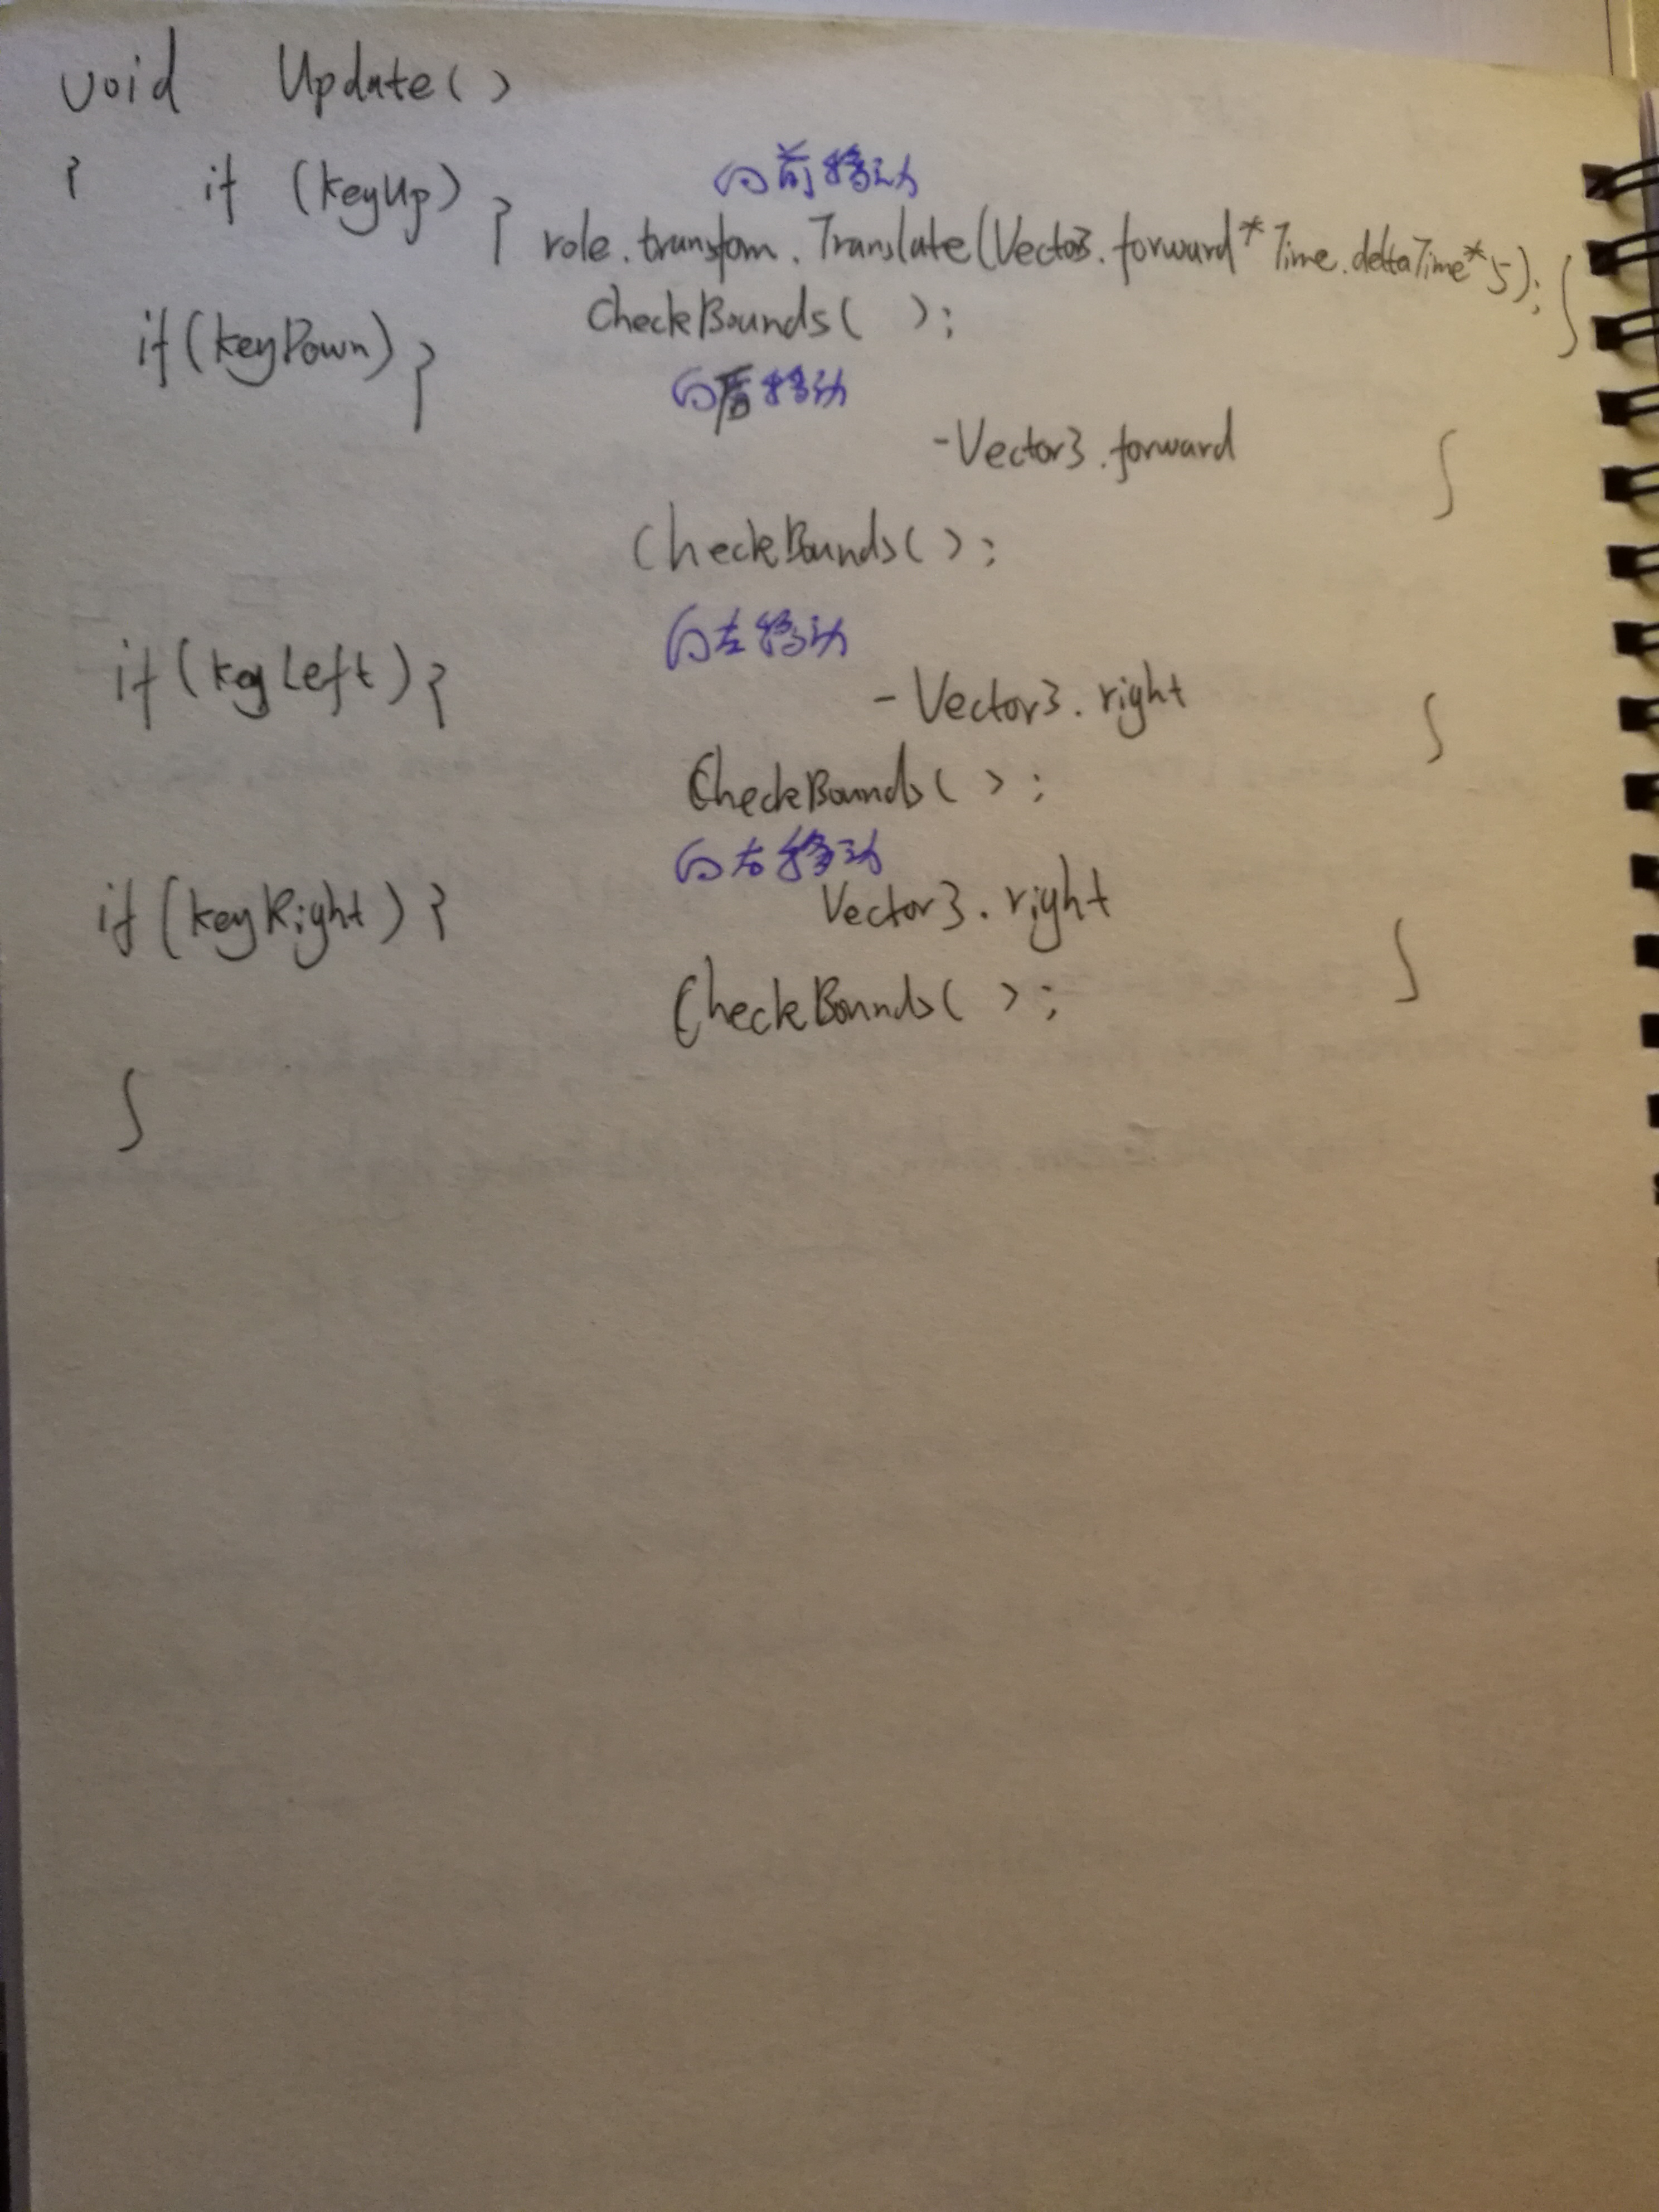 void Update()
{ if (keyUp) { 向前移动
role.transfom.Translate(Vector3.forward*Time.deltaTime*5); }
CheckBounds( );
if(keyDown) { 向后移动
-Vector3.forward }
CheckBounds( );
向左移动
if(keyLeft) { -Vector3.right }
CheckBounds( );
向右移动
if(keyRight) { Vector3.right }
CheckBounds( );
}